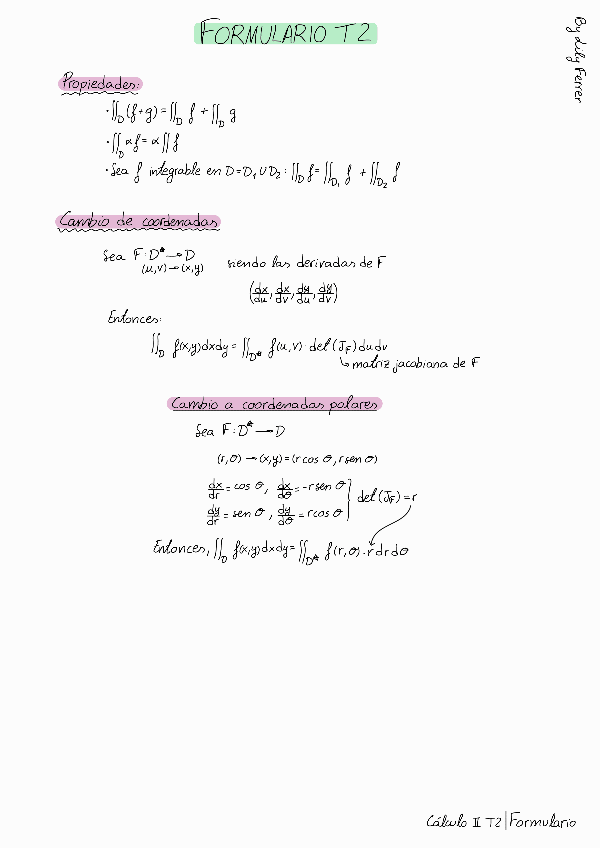 FORMULARIO T2
By Lily Ferrer
Propiedades:
· ∬_D (f+g) = ∬_D f + ∬_D g
· ∬_D αf = α ∬ f
· Sea f integrable en D = D₁ ∪ D₂ : ∬_D f = ∬_D₁ f + ∬_D₂ f
Cambio de coordenadas
Sea F: D* → D siendo las derivadas de F
(u,v) → (x,y)
(dx/du, dx/dv, dy/du, dy/dv)
Entonces:
∬_D f(x,y)dxdy = ∬_D* f(u,v) · det(J_F) du dv
↳ matriz jacobiana de F
Cambio a coordenadas polares
Sea F: D* → D
(r,θ) → (x,y) = (r cos θ, r sen θ)
dx/dr = cos θ, dx/dθ = -r sen θ
dy/dr = sen θ, dy/dθ = r cos θ
det(J_F) = r
Entonces, ∬_D f(x,y)dxdy = ∬_D* f(r,θ) · r dr dθ
Cálculo II T2 | Formulario